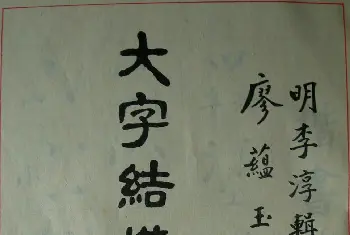 明李淳輯
廖蘊玉
大字結